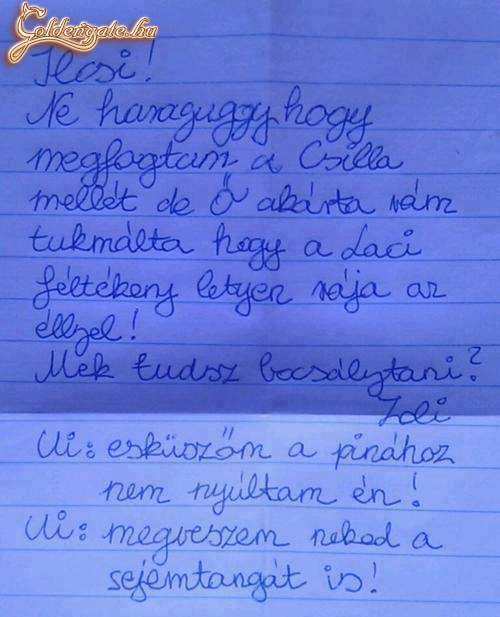 Goldengate.hu
Ilcsi!
Ne haraguggy hogy
megfogtam a Csilla
mellét de Ő akárta rám
tukmálta hogy a Laci
féltékeny letyen rája az
éllyel!
Mek tudsz bocsálytani?
Zoli
Ui: esküszöm a pinához
nem nyúltam én!
Ui: megveszem neked a
sejémtangát is!